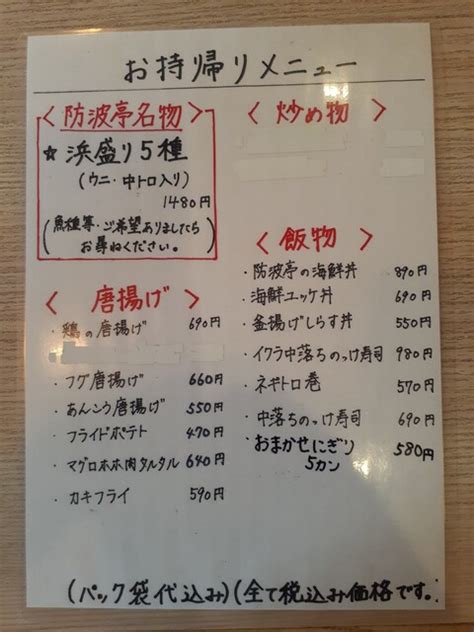 お持帰りメニュー
〈防波亭名物〉
☆浜盛り5種
(ウニ・中トロ入り)
1480円
(魚種等・ご希望ありましたら
お尋ねください。)
〈唐揚げ〉
・鶏の唐揚げ 690円
・フグ唐揚げ 660円
・あんこう唐揚げ 550円
・フライドポテト 470円
・マグロホホ肉タルタル 640円
・カキフライ 590円
〈炒め物〉
〈飯物〉
・防波亭の海鮮丼 890円
・海鮮ユッケ丼 690円
・釜揚げしらす丼 550円
・イクラ中落ちのっけ寿司 980円
・ネギトロ巻 570円
・中落ちのっけ寿司 690円
・おまかせにぎり 580円
5カン
(パック袋代込み)(全て税込み価格です。)